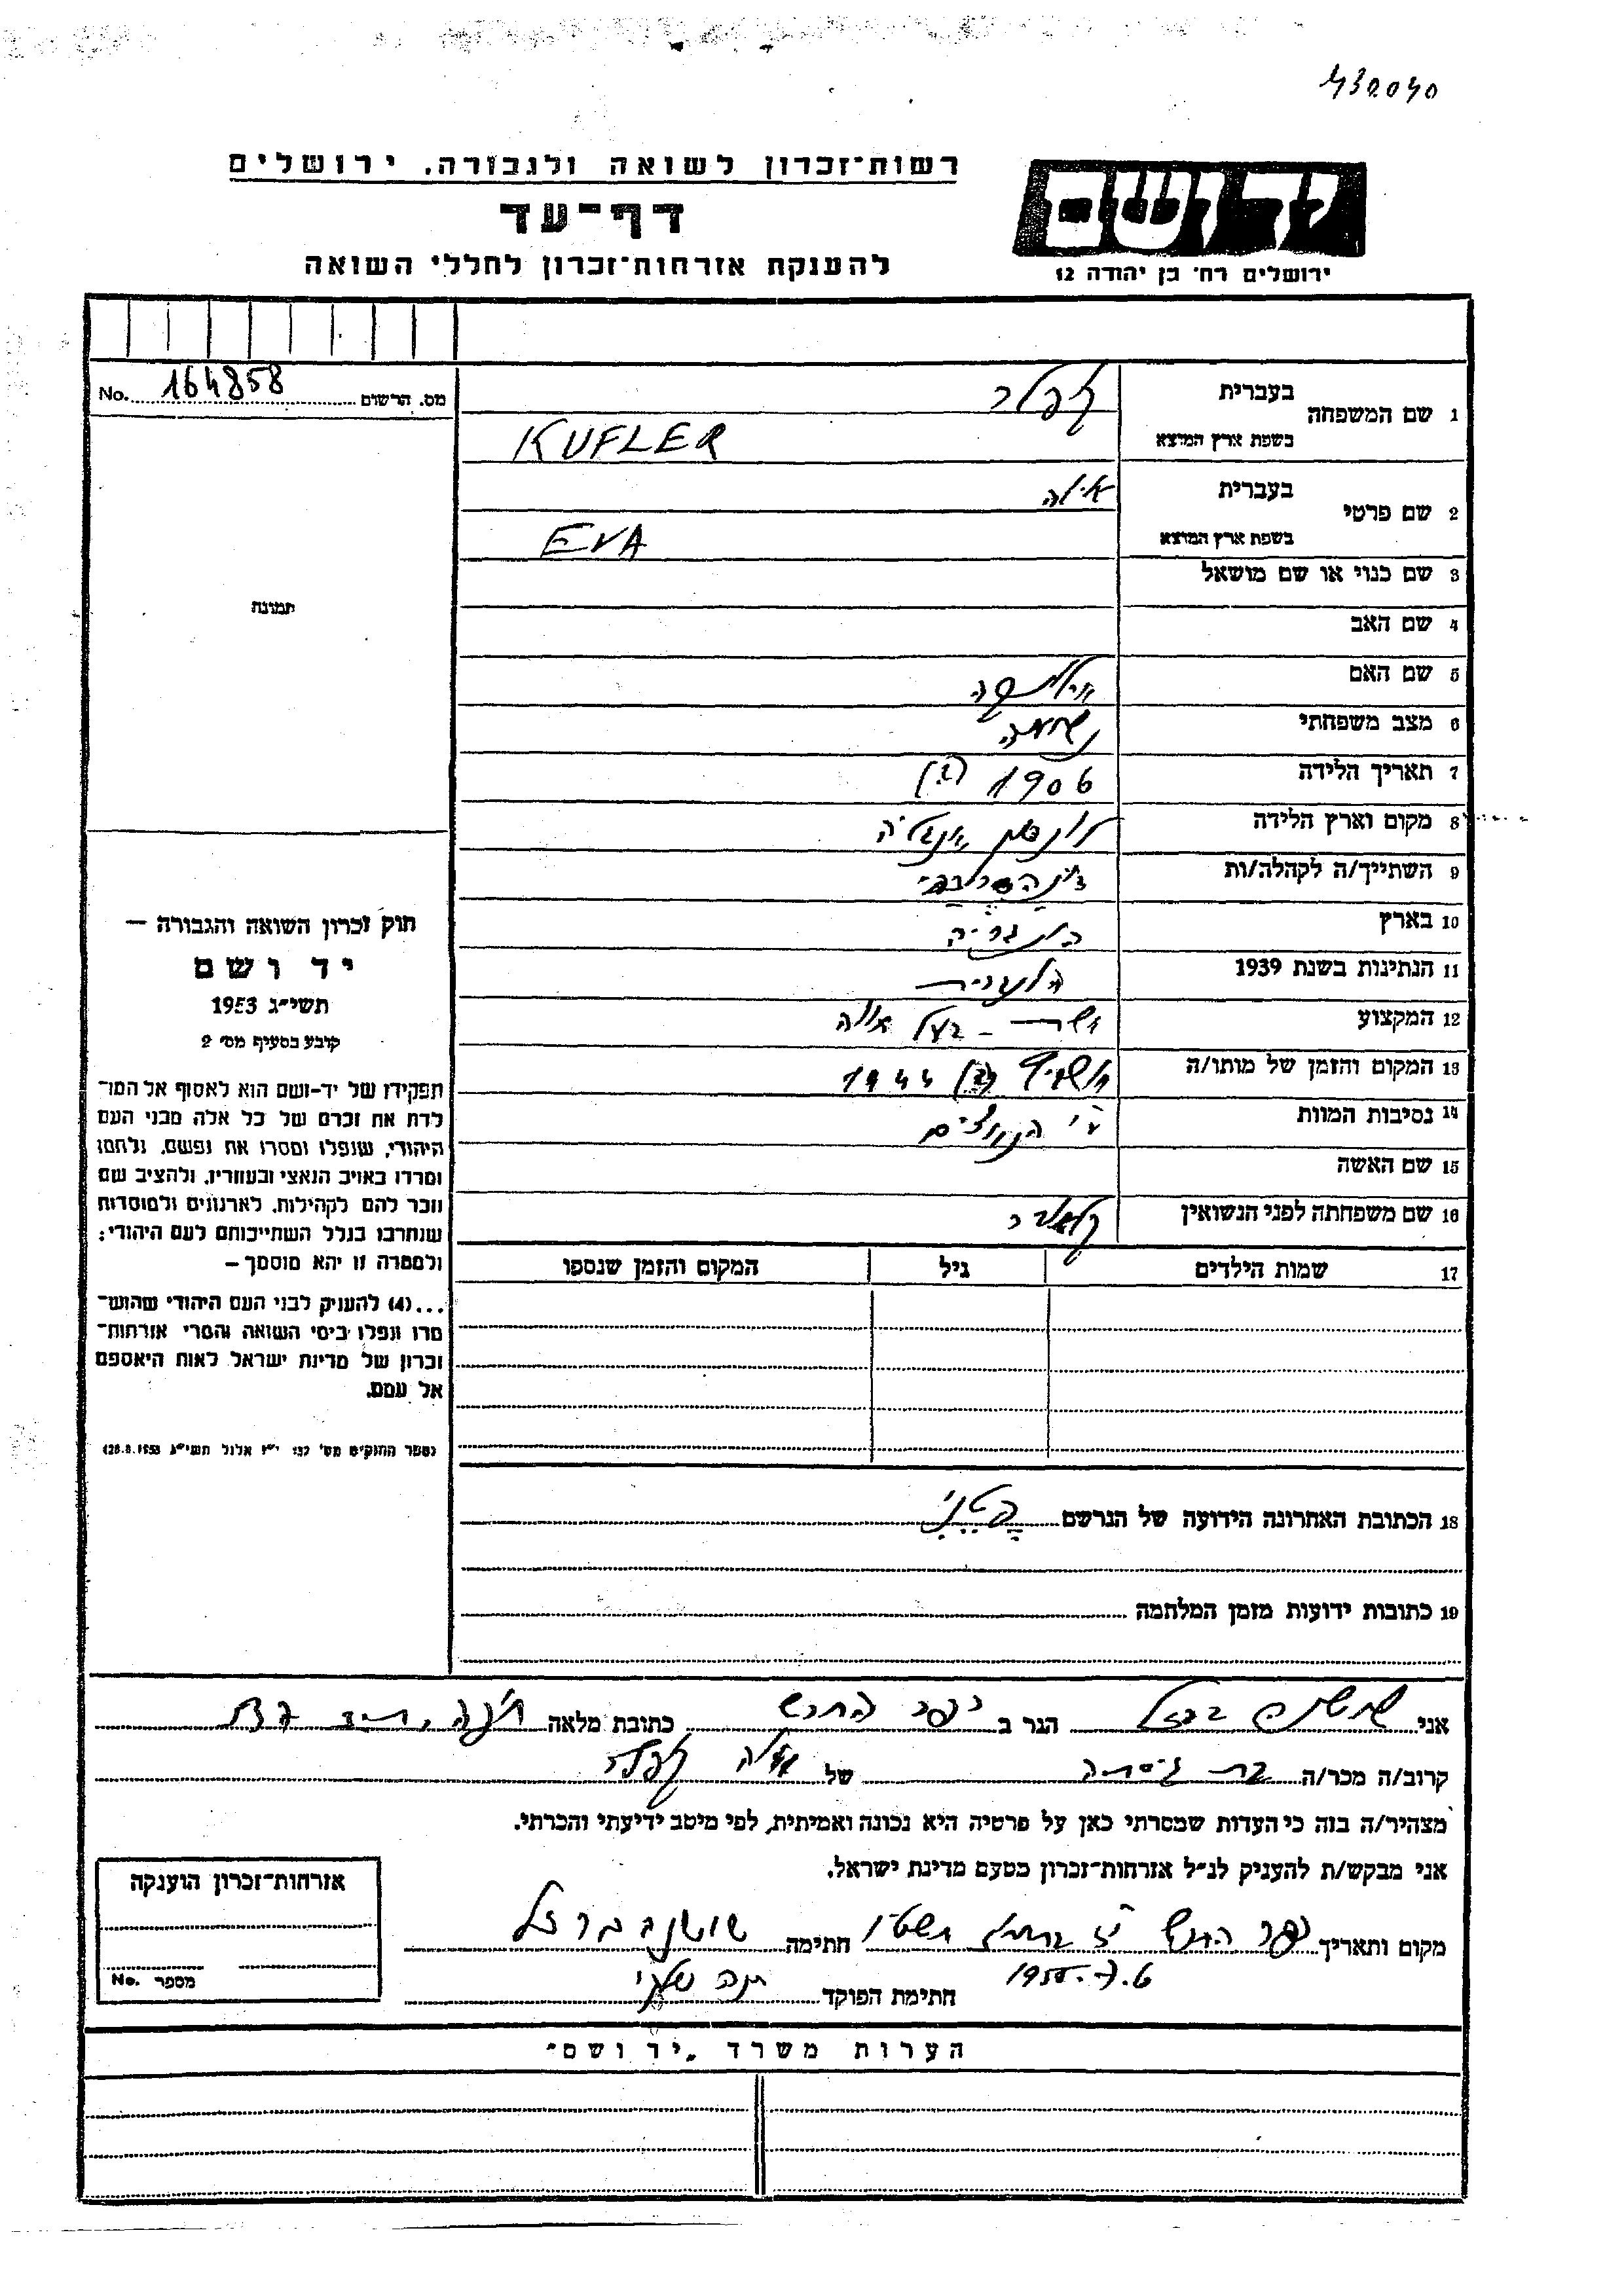 430040
רשות־זכרון לשואה ולגבורה, ירושלים
דף־עד
להענקת אזרחות־זכרון לחללי השואה
יד ושם
ירושלים רח' בן יהודה 12
מס. הרשום 164858 No.
1 שם המשפחה
בעברית קפלר
בשפת ארץ המוצא KUFLER
2 שם פרטי
בעברית
בשפת ארץ המוצא EVA
3 שם כנוי או שם מושאל
4 שם האב
5 שם האם
6 מצב משפחתי נשואה
7 תאריך הלידה 1906
8 מקום וארץ הלידה לונדון אנגליה
9 השתייך/ה לקהלה/ות
10 בארץ הונגריה
11 הנתינות בשנת 1939 הונגרית
12 המקצוע
13 המקום והזמן של מותו/ה 1944
14 נסיבות המוות ע"י הנאצים
15 שם האשה
16 שם משפחתה לפני הנשואין
17 שמות הילדים גיל המקום והזמן שנספו
18 הכתובת האחרונה הידועה של הנרשם
19 כתובות ידועות מזמן המלחמה
תמונה
חוק זכרון השואה והגבורה –
יד ושם
תשי״ג 1953
קובע בסעיף מס' 2
תפקידו של יד-ושם הוא לאסוף אל המו־
לדת את זכרם של כל אלה מבני העם
היהודי, שנפלו ומסרו את נפשם, נלחמו
ומרדו באויב הנאצי ובעוזריו, ולהציב שם
וזכר להם לקהילות, לארגונים ולמוסדות
שנחרבו בגלל השתייכותם לעם היהודי;
ולמטרה זו יהא מוסמך –
...(4) להעניק לבני העם היהודי שהוש־
מדו ונפלו בימי השואה והמרי אזרחות־
זכרון של מדינת ישראל לאות היאספם
אל עמם.
(ספר החוקים מס' 132 י״ז אלול תשי״ג 28.8.1953)
אני שושנה ברזל הגר ב כפר החרש כתובת מלאה
קרוב/ה מכר/ה בת גיסתה של
מצהיר/ה בזה כי העדות שמסרתי כאן על פרטיה היא נכונה ואמיתית, לפי מיטב ידיעתי והכרתי.
אני מבקש/ת להעניק לנ״ל אזרחות־זכרון מטעם מדינת ישראל.
מקום ותאריך כפר החרש חתימה שושנה ברזל
חתימת הפוקד
אזרחות־זכרון הוענקה
מספר No.
הערות משרד „יד ושם״